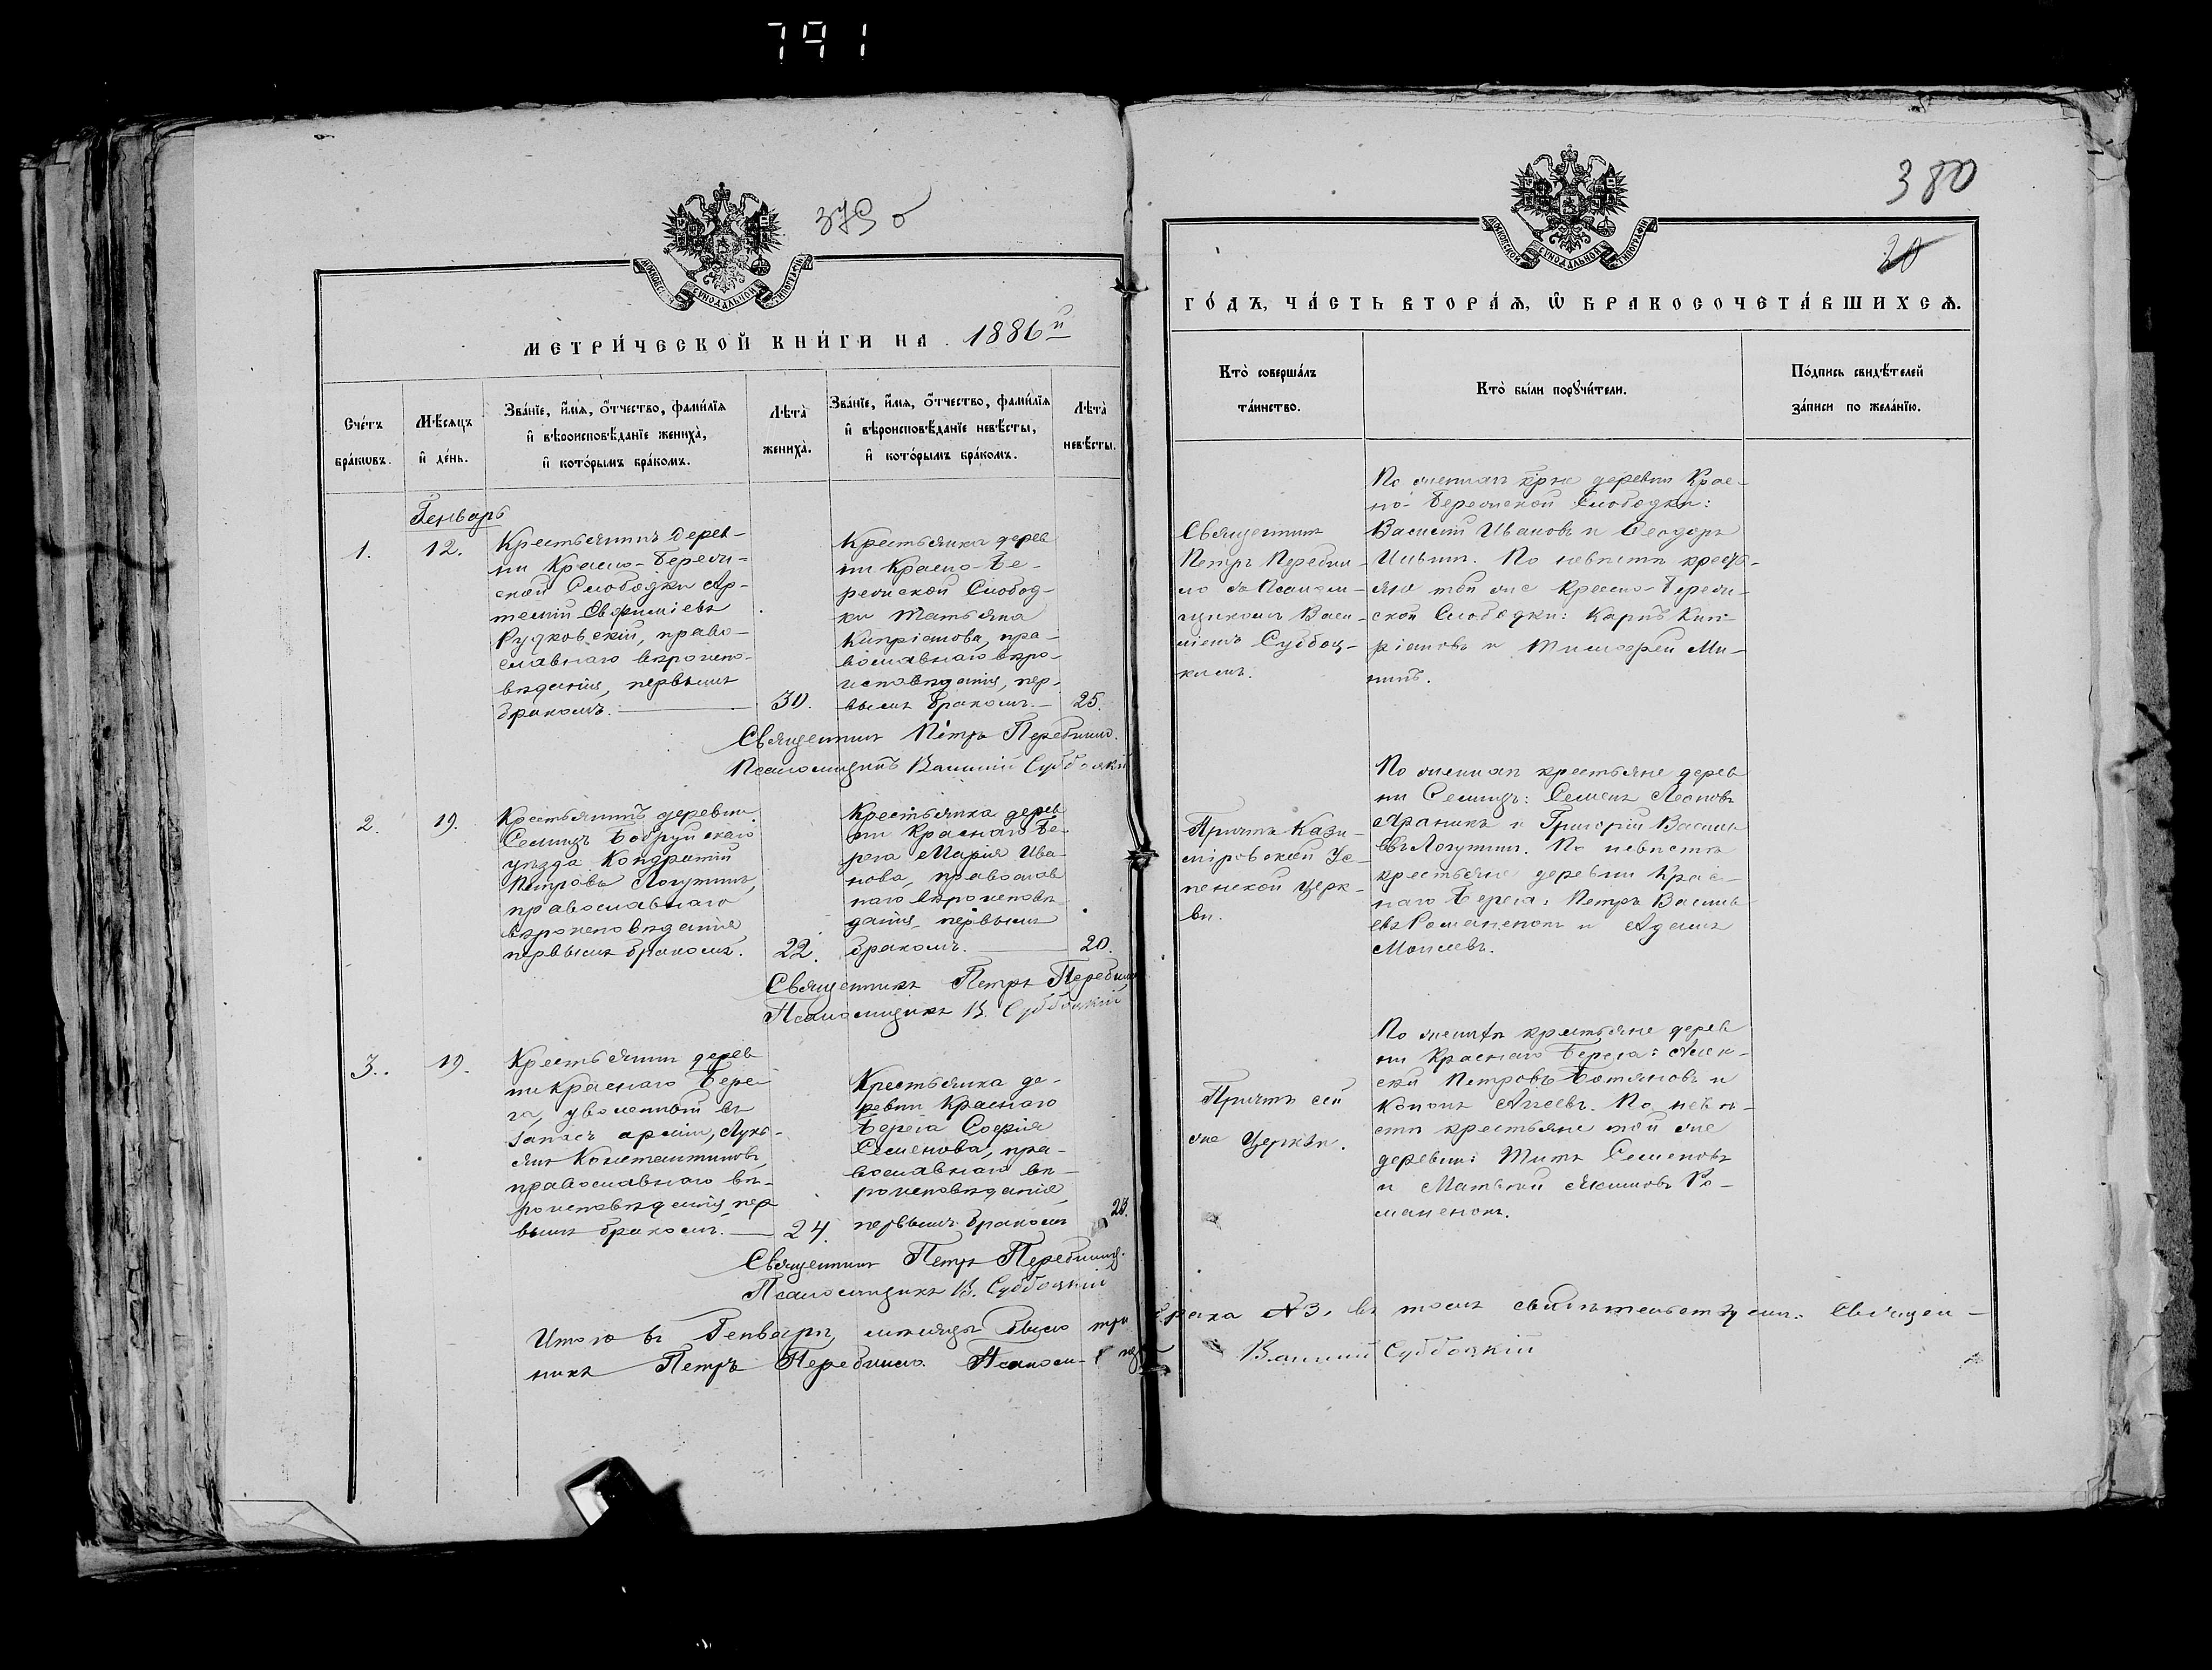 791
379 о
МОСКОВСКОЙ СѴНОДАЛЬНОЙ ТИПОГРАФІИ
МЕТРИ́ЧЕСКОЙ КНИ́ГИ НА 1886й
Сче́тъ бра́кѡвъ.
Мѣ́сяцъ и҆ де́нь.
Зва́нїе, и҆́мѧ, ѻ҆́тчество, фами́лїѧ
и҆ вѣроисповѣ́данїе жениха̀,
и҆ кото́рымъ бра́комъ.
Лѣта̀ жениха̀.
Зва́нїе, и҆́мѧ, ѻ҆́тчество, фами́лїѧ
и҆ вѣроисповѣ́данїе невѣ́сты,
и҆ кото́рымъ бра́комъ.
Лѣта̀ невѣ́сты.
Генварь
1.
12.
Крестьянинъ дерев-
ни Красно-Береж-
ской Слободки Ар-
темій Евфиміевъ
Рудковскій, право-
славнаго вѣроиспо-
вѣданія, первымъ
бракомъ.
30.
Крестьянка дерев
ни Красно-Бе-
режской Слобод-
ки Татьяна
Кипріанова, пра-
вославнаго вѣро-
исповѣданія, пер-
вымъ бракомъ.
25.
Священникъ Петръ Перебилло.
Псаломщикъ Василій Субботскій
2.
19.
Крестьянинъ деревни
Селищъ Бобруйскаго
уѣзда Кондратій
Петровъ Логутинъ,
православнаго
вѣроисповѣданія
первымъ бракомъ.
22.
Крестьянка дерев
ни Краснаго Бе-
рега Марія Ива-
нова, православ
наго вѣроисповѣ
данія, первымъ
бракомъ.
20.
Священникъ Петръ Перебилло
Псаломщикъ В. Субботскій
3.
19.
Крестьянинъ дерев
ни Краснаго Бере
га, уволенный въ
запасъ арміи, Лукь-
янъ Константиновъ,
православнаго вѣ-
роисповѣданія, пер
вымъ бракомъ.
24.
Крестьянка де-
ревни Краснаго
Берега Софія
Семенова, пра-
вославнаго вѣ-
роисповѣданія
первымъ бракомъ
Священникъ Петръ Перебилло.
Псаломщикъ В. Субботскій
Итого въ Генварѣ мѣсяцѣ было три
брака №3, въ томъ свидѣтельствуемъ: Священ-
никъ Петръ Перебилло. Псаломщ
Василій Субботскій
380
20
МОСКОВСКОЙ СѴНОДАЛЬНОЙ ТИПОГРАФІИ
ГО́ДЪ, ЧА́СТЬ ВТОРА́Ѧ, Ѡ҆ БРАКОСОЧЕТА́ВШИХСѦ.
Кто̀ соверша́лъ
та́инство.
Кто̀ бы́ли порꙋчи́тели.
По́дпись свидѣ́телей
за́писи по жела́нїю.
Священникъ
Петръ Перебил-
ло съ Псалом-
щикомъ Васи-
ліемъ Суббот-
кимъ.
По женихѣ крне деревни Крас-
но-Бережской Слободки:
Василій Ивановъ и Ѳеодоръ
Ильинъ. По невѣстѣ кресть-
яне той же Красно-Береж-
ской Слободки: Карпъ Кип-
ріановъ и Тимофей Ми-
нинъ.
Причтъ Кази-
міровской Ус-
пенской Церк-
ви.
По женихѣ крестьяне дерев
ни Селищъ: Семенъ Леоновъ
и Григорій Василь
евъ Логутинъ. По невѣстѣ
крестьяне деревни Крас-
наго Берега: Петръ Василь
евъ Романенокъ и Адамъ
Моисеевъ.
Причтъ сей
же Церкви.
По женихѣ крестьяне дерев
ни Краснаго Берега: Алек-
сѣй Петровъ Ботяновъ и
Кононъ Агеевъ. По невѣ-
стѣ крестьяне той же
деревни: Титъ Семеновъ
и Матвѣй Якимовъ Ро-
маненокъ.